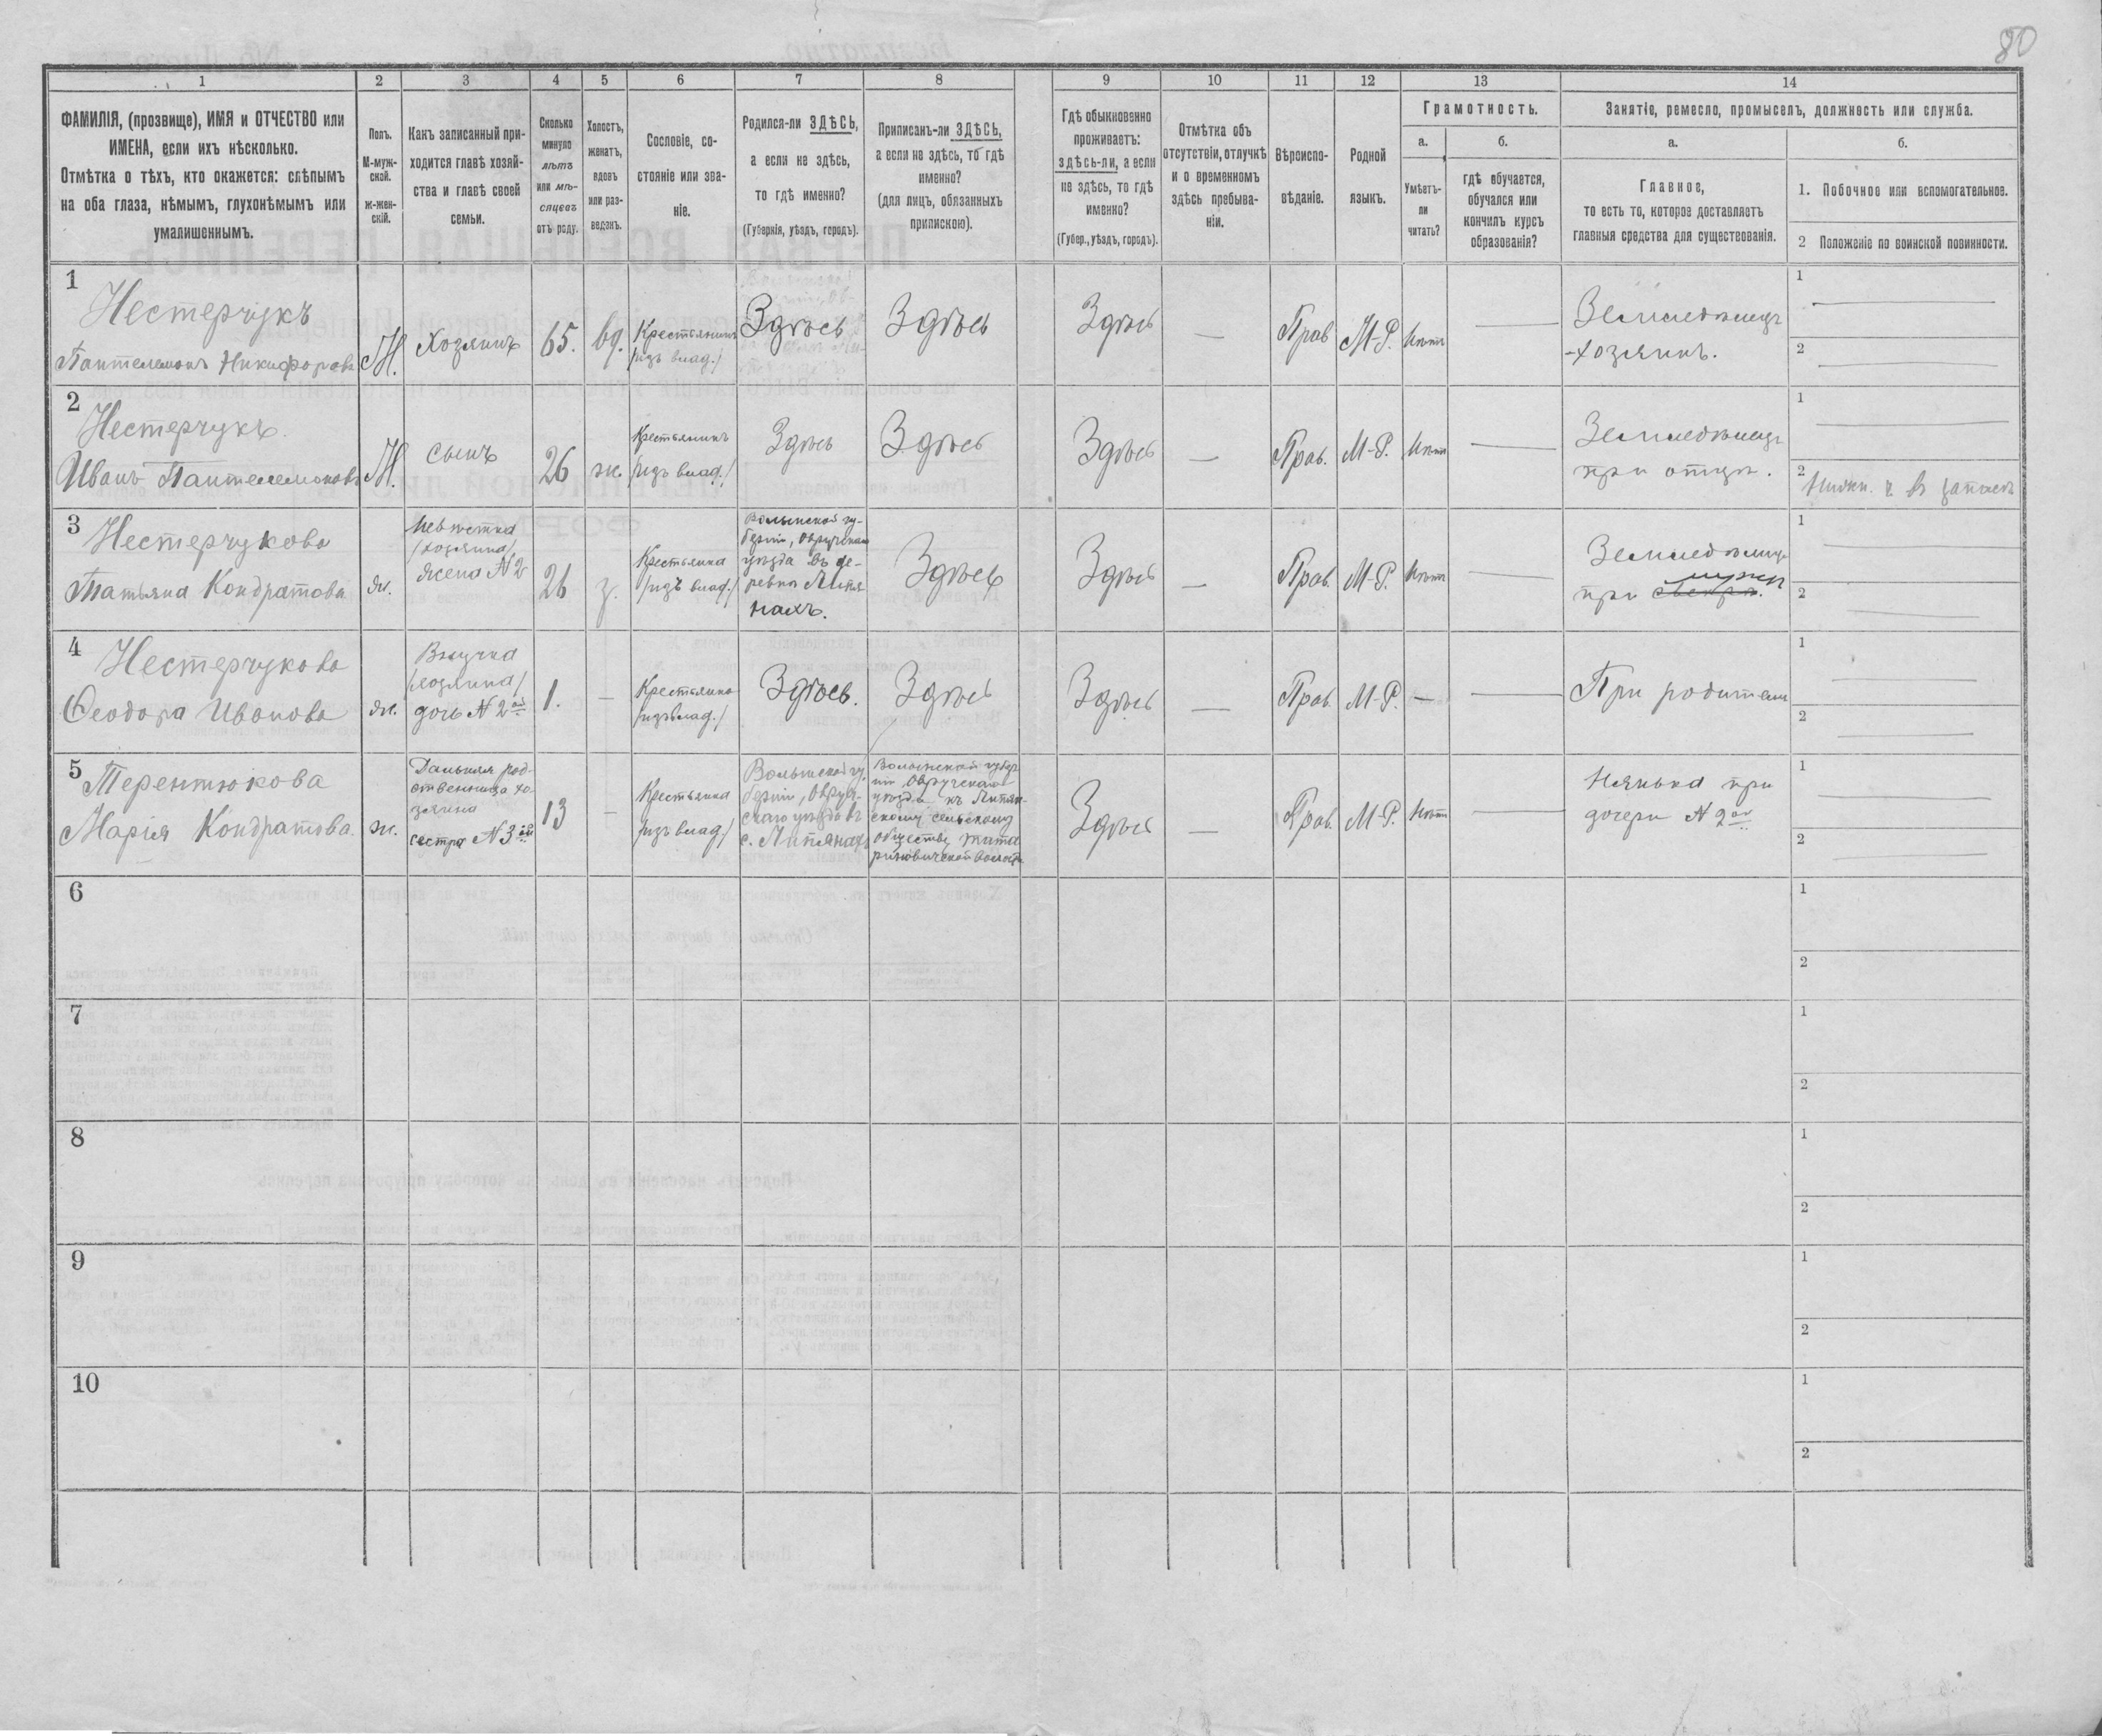 80
1 2 3 4 5 6 7 8 9 10 11 12 13 14
ФАМИЛІЯ, (прозвище), ИМЯ и ОТЧЕСТВО или
ИМЕНА, если ихъ нѣсколько.
Отмѣтка о тѣхъ, кто окажется: слѣпымъ
на оба глаза, нѣмымъ, глухонѣмымъ или
умалишеннымъ.
Полъ.
М-муж-
ской.
ж-жен-
скій.
Какъ записанный при-
ходится главѣ хозяй-
ства и главѣ своей
семьи.
Сколько
минуло
лѣтъ
или мѣ-
сяцевъ
отъ роду.
Холостъ,
женатъ,
вдовъ
или раз-
веденъ.
Сословіе, со-
стояніе или зва-
ніе.
Родился-ли ЗДѢСЬ,
а если не здѣсь,
то гдѣ именно?
(Губернія, уѣздъ, городъ).
Приписанъ-ли ЗДѢСЬ,
а если не здѣсь, то гдѣ
именно?
(для лицъ, обязанныхъ
припискою).
Гдѣ обыкновенно
проживаетъ:
здѣсь-ли, а если
не здѣсь, то гдѣ
именно?
(Губер., уѣздъ, городъ).
Отмѣтка объ
отсутствіи, отлучкѣ
и о временномъ
здѣсь пребыва-
ніи.
Вѣроиспо-
вѣданіе.
Родной
языкъ.
Грамотность.
а.
Умѣетъ-
ли
читать?
б.
гдѣ обучается,
обучался или
кончилъ курсъ
образованія?
Занятіе, ремесло, промыселъ, должность или служба.
а.
Главное,
то есть то, которое доставляетъ
главныя средства для существованія.
б.
1. Побочное или вспомогательное.
2 Положеніе по воинской повинности.
1
Нестерчукъ
Пантелемонъ Никифоровъ
М.
Хозяинъ
65.
вд.
Крестьянинъ
/изъ влад./
Здѣсь
Здѣсь
Здѣсь
—
Прав
М-Р.
Нѣтъ
—
Земледѣлецъ
-хозяинъ.
1 —
2 —
2
Нестерчукъ.
Иванъ Пантелемоновъ
М.
сынъ
26
ж.
Крестьянинъ
/изъ влад./
Здѣсь
Здѣсь
Здѣсь
—
Прав.
М-Р.
Нѣтъ
—
Земледѣлецъ
при отцѣ.
1 —
2 Нижн. ч. въ запасѣ
3
Нестерчукова
Татьяна Кондратова
ж.
Невѣстка
/хозяина/
жена N 2
26
з.
Крестьянка
/изъ влад./
Волынской гу-
берніи, Овручскаго
уѣзда въ де-
ревнѣ Липля-
нахъ.
Здѣсь
Здѣсь
—
Прав.
М-Р.
Нѣтъ
—
Земледѣлица
мужѣ
при свекрѣ.
1 —
2 —
4
Нестерчукова
Ѳеодора Иванова
ж.
Внучка
/хозяина/
дочь N 2ой
1.
—
Крестьянка
/изъ влад./
Здѣсь.
Здѣсь
Здѣсь
—
Прав.
М-Р.
—
—
При родителѣ
1 —
2 —
5
Терентюкова
Марія Кондратова.
ж.
Дальняя род-
ственница хо-
зяина
сестра N 3ей
13
—
Крестьянка
/изъ влад./
Волынской гу-
берніи, Овруч-
скаго уѣзда въ
с. Липлянахъ
Волынской губер-
ніи, Овручскаго
уѣзда къ Липлян-
скому сельскому
обществу
волости
Здѣсь
—
Прав.
М-Р.
Нѣтъ
—
Нянька при
дочери N 2ой
1 —
2 —
6
1
2
7
1
2
8
1
2
9
1
2
10
1
2